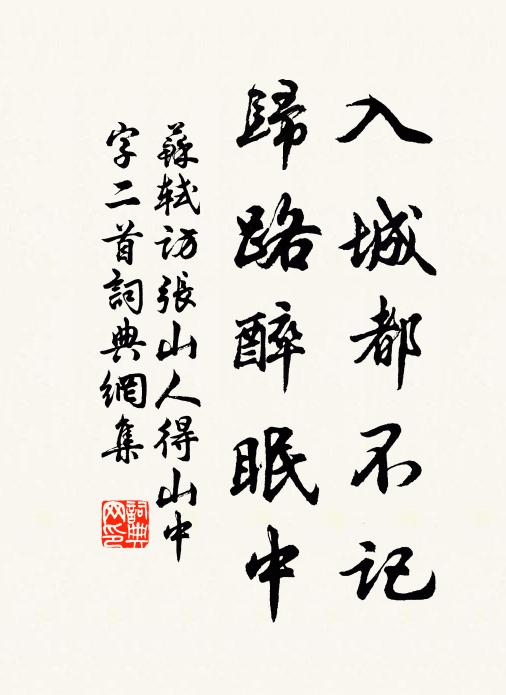 入城都不記
歸路醉眠中
蘇軾访張山人得山中
字二首詞典網集
詞典
网印